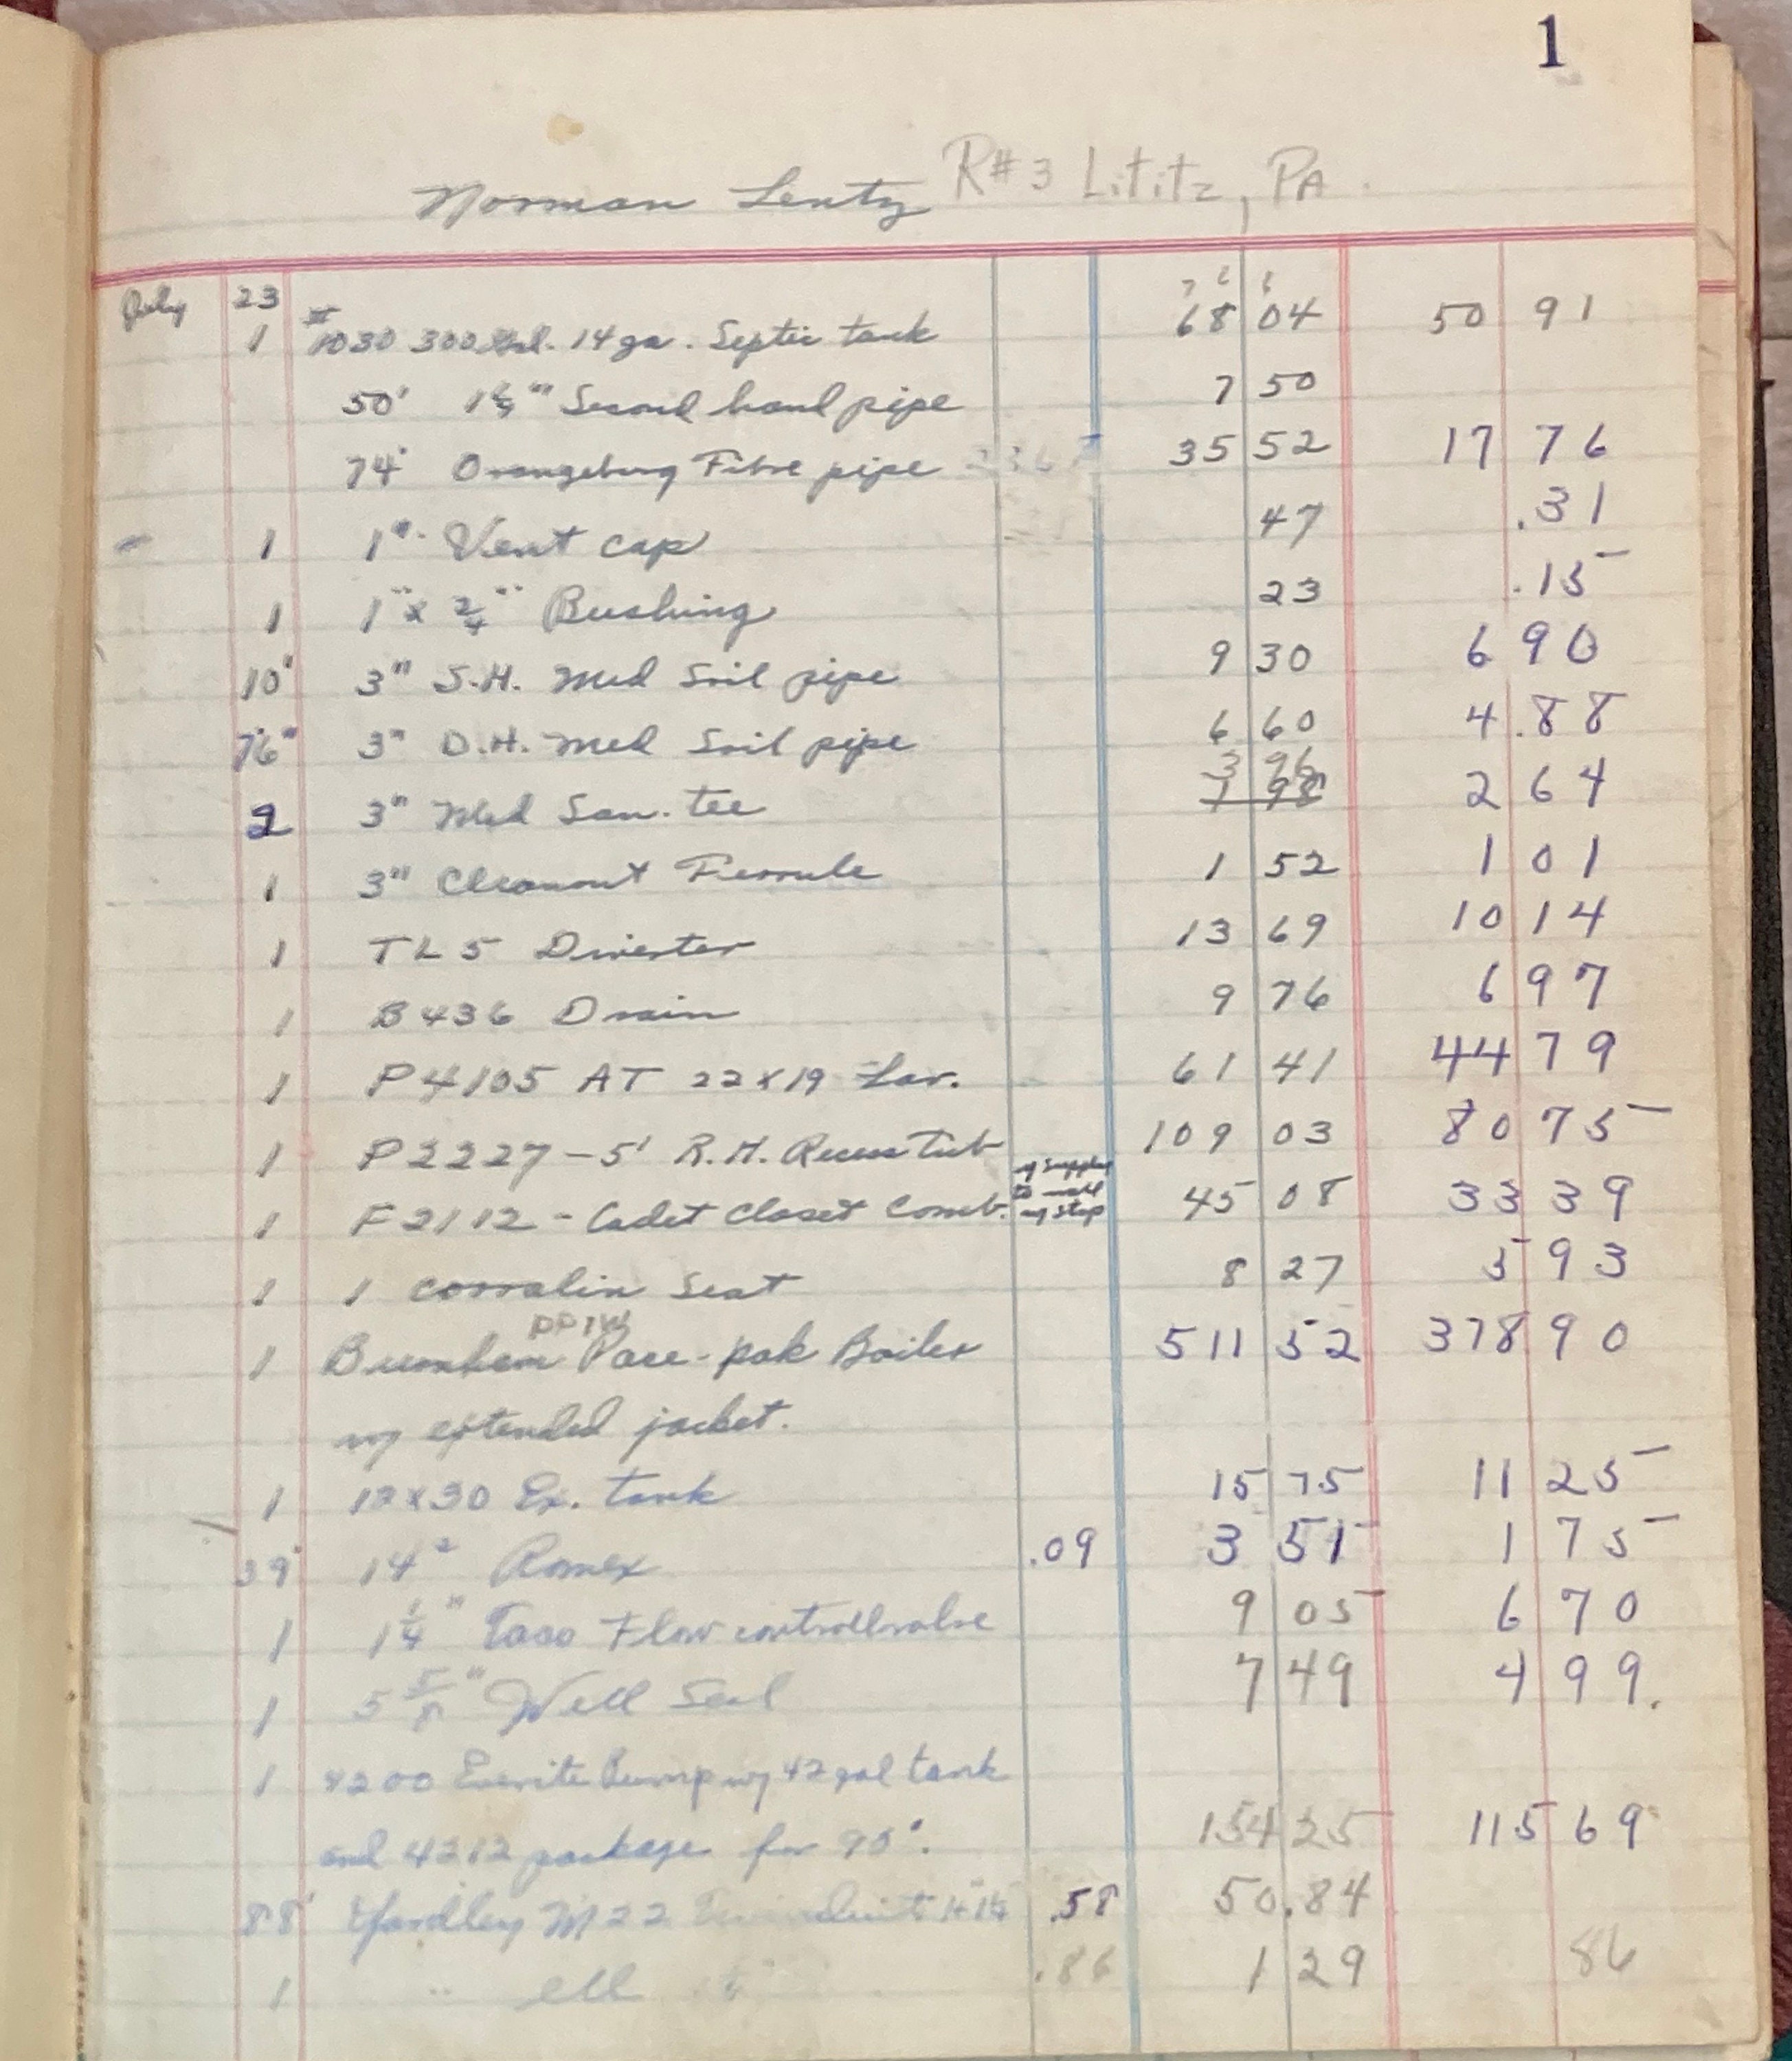 1
Norman Lentz R#3 Lititz, PA.
July 23
7 6 6
1 #1030 300 Gal. 14 ga. Septic tank 68 04 50 91
50' 1 1/4" Second hand pipe 7 50
74' Orangeburg Fibre pipe 35 52 17 76
1 1" Vent cap 47 .31
1 1" x 3/4" Bushing 23 .15
10' 3" S.H. Med Soil pipe 9 30 6 90
7'6" 3" D.H. Med Soil pipe 6 60 4.88
3 96
2 3" Med San. tee 1 98 2 64
1 3" Cleanout Ferrule 1 52 1 01
1 TL5 Diverter 13 69 10 14
1 B436 Drain 9 76 6 97
1 P4105 AT 22x19 Lav. 61 41 44 79
1 P2227-5' R.H. Recess Tub 109 03 80 75
1 F2112 - Cadet Closet Comb. w/ supplies to wall w/ stop 45 08 33 39
1 1 Corralin Seat 8 27 5 93
1 Burnham Pace-pak Boiler 511 52 378 90
w/ extended jacket.
1 12x30 Ex. tank 15 75 11 25
39' 14² Romex .09 3 51 1 75
1 1 1/4" Taco Flow controll valve 9 05 6 70
1 5 5/8" Well Seal 7 49 4 99.
1 4200 Everite Pump w/ 42 gal tank
and 4212 package for 95'. 154 25 115 69
88' Yardley M22 .58 50.84
1 " ell .86 1 29 86